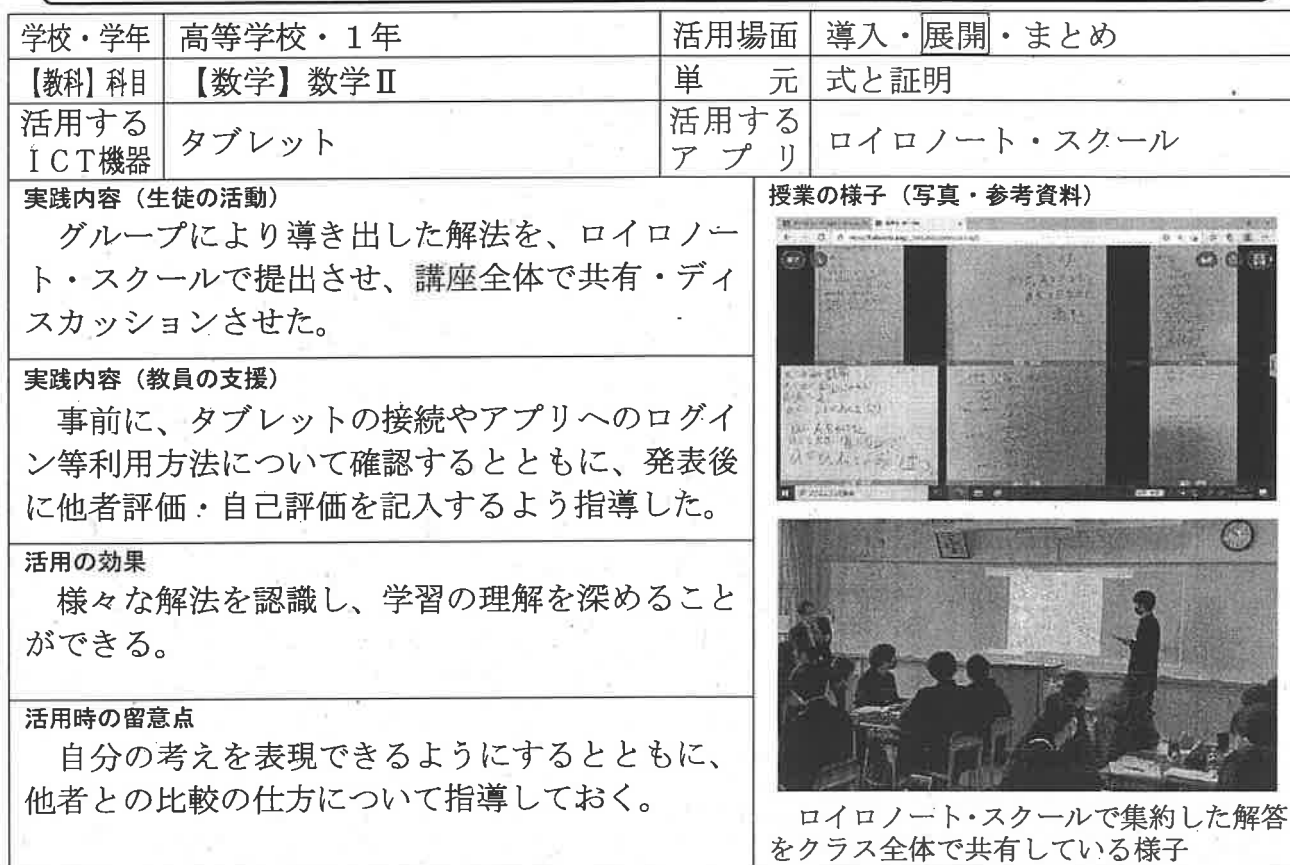 学校・学年 高等学校・1年 活用場面 導入・展開・まとめ
【教科】科目 【数学】数学Ⅱ 単元 式と証明
活用する
ICT機器 タブレット 活用する
アプリ ロイロノート・スクール
実践内容(生徒の活動)
グループにより導き出した解法を、ロイロノー
ト・スクールで提出させ、講座全体で共有・ディ
スカッションさせた。
実践内容(教員の支援)
事前に、タブレットの接続やアプリへのログイ
ン等利用方法について確認するとともに、発表後
に他者評価・自己評価を記入するよう指導した。
活用の効果
様々な解法を認識し、学習の理解を深めること
ができる。
活用時の留意点
自分の考えを表現できるようにするとともに、
他者との比較の仕方について指導しておく。
授業の様子(写真・参考資料)
ロイロノート・スクールで集約した解答
をクラス全体で共有している様子